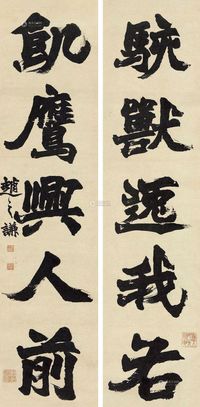 駭獸逸我右
飢鷹興人前
趙之謙